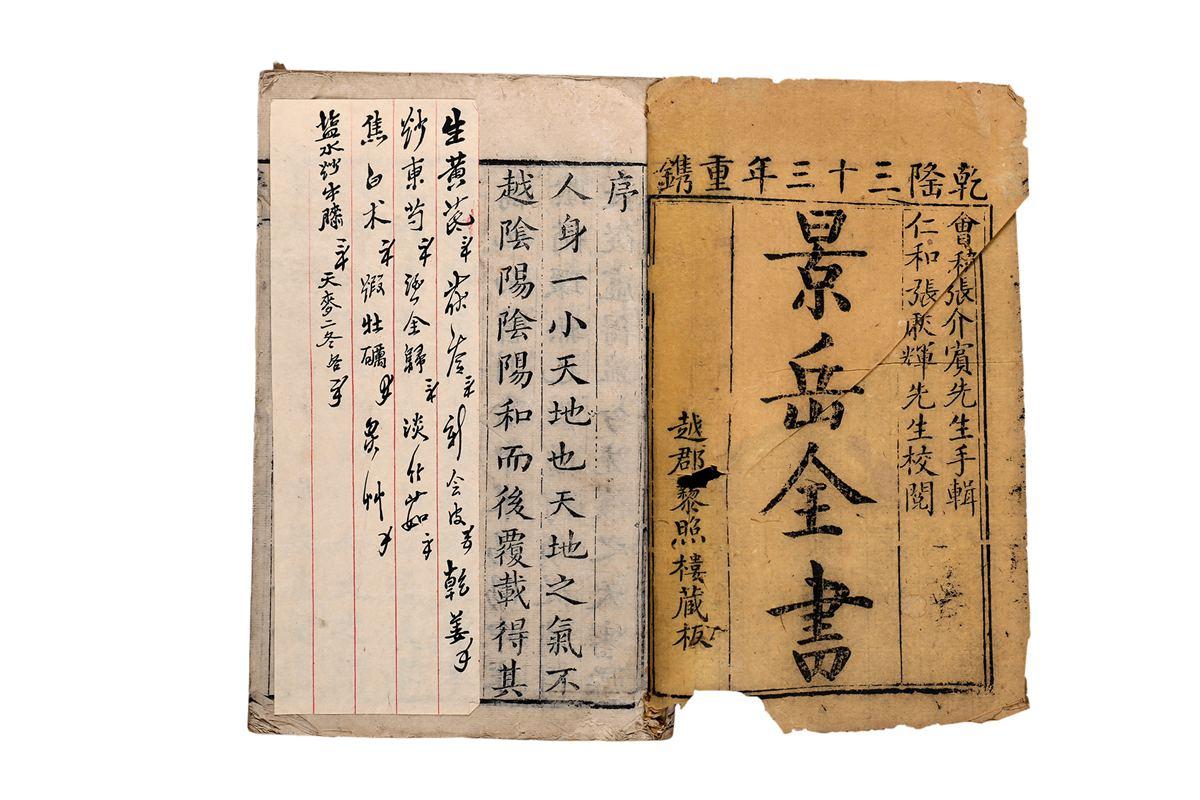 乾隆三十三年重鐫
會稽張介賓先生手輯
仁和張厥輝先生校閱
景岳全書
越郡黎照樓藏板
序
人身一小天地也天地之氣不
越陰陽陰陽和而後覆載得其
生黃芪 乾姜
炒東芍 全歸 淡竹茹
焦白术 煅牡礪
塩水炒牛膝 天麥二冬各